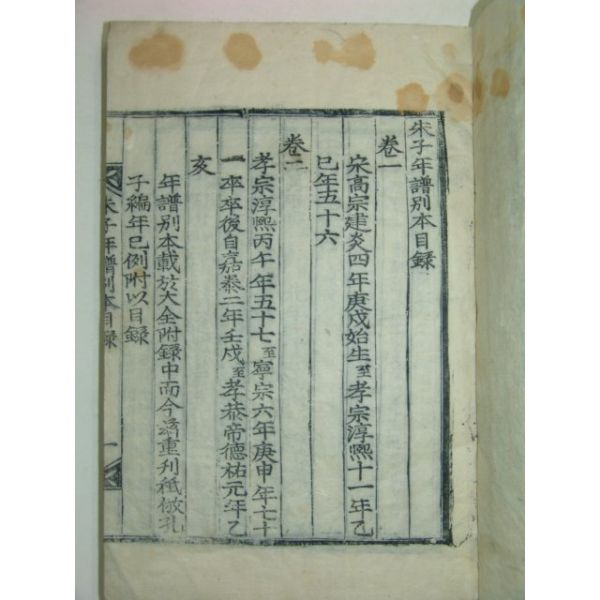 朱子年譜別本目錄
卷一
宋高宗建炎四年庚戌始生至孝宗淳熙十一年乙
巳年五十六
卷二
孝宗淳熙丙午年五十七至寧宗六年庚申年七十
一卒卒後自嘉泰二年壬戌至孝恭帝德祐元年乙
亥
年譜別本載於大全附錄中而今爲重刊秪倣孔
子編年已例附以目錄
朱子年譜別本目錄
一